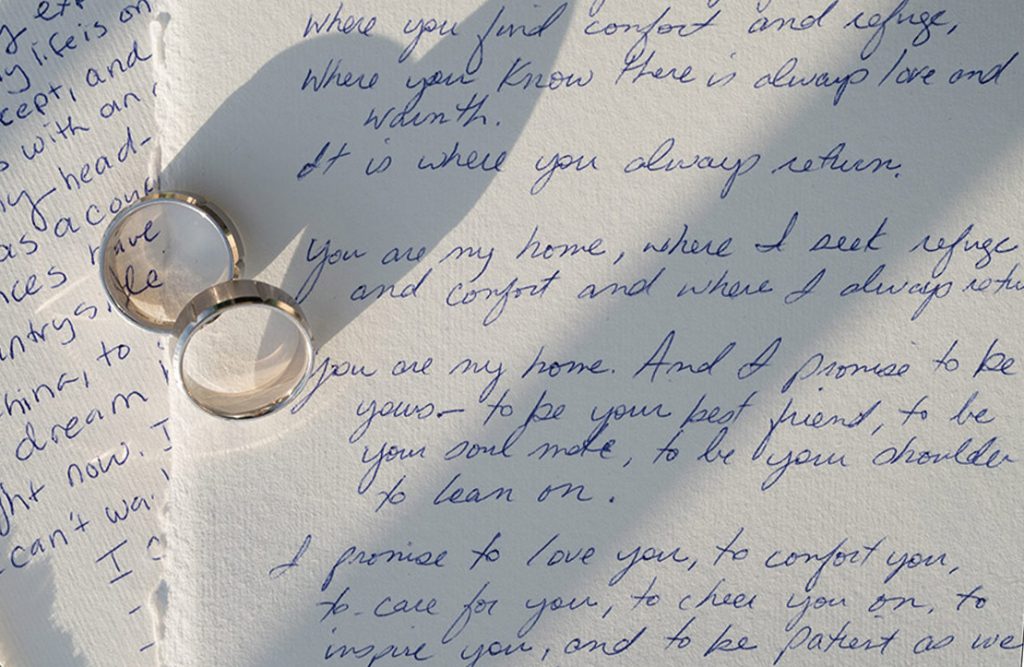 y exp
y life is on
cept, and
s with an
y head-
as a coun
nces have
untrys. He
china, to
dream
ght now. I
can't wa
I c
where you find comfort and refuge,
where you know there is always love and
warmth.
It is where you always return.
You are my home, where I seek refuge
and comfort and where I always retu
You are my home. And I promise to be
yours— to be your best friend, to be
your soul mate, to be your shoulder
to lean on.
I promise to love you, to comfort you,
to care for you, to cheer you on, to
inspire you, and to be patient as we